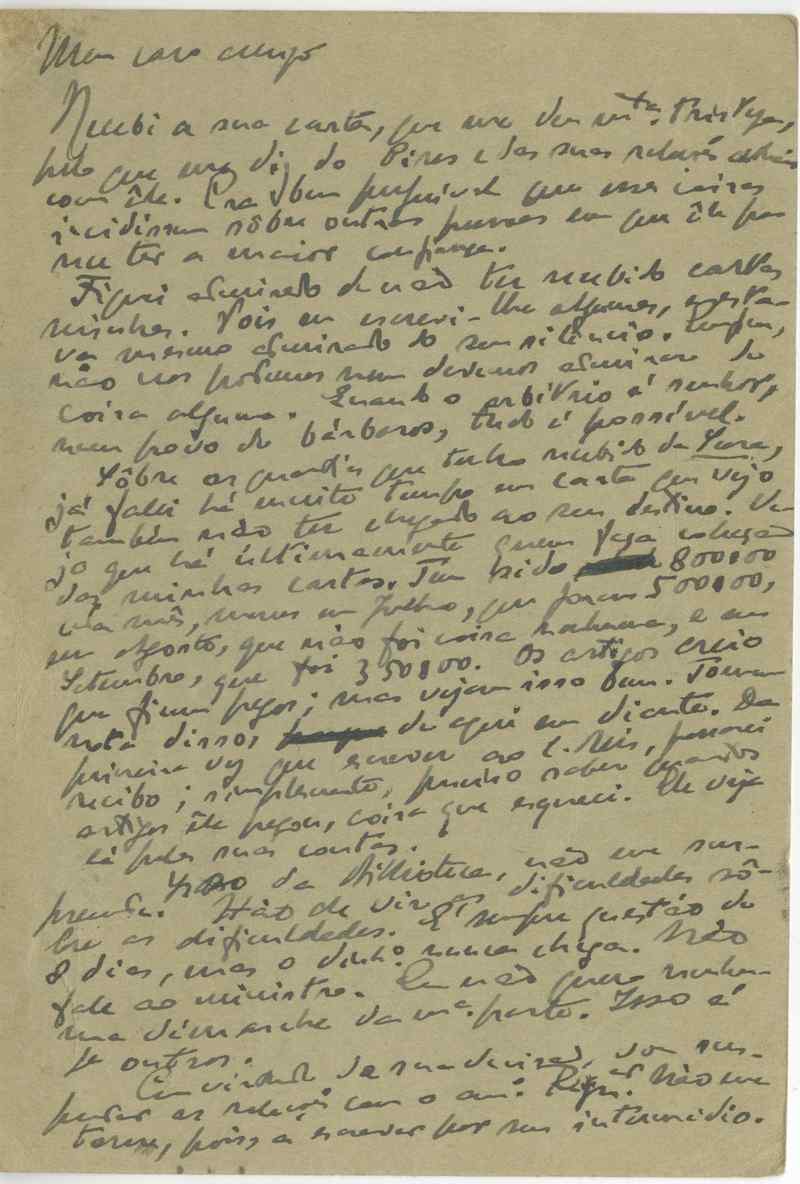 Meu caro amigo
Recebi a sua carta, que me deu mta. tristeza,
pelo que me diz do Pires e das suas relações
com êle. Era bem preferível que essas coisas
incidissem sôbre outras pessoas em que êle
ter a maior confiança.
Fiquei admirado de não ter recebido cartas
minhas. Pois eu escrevi-lhe algumas, e esta-
va mesmo admirado do seu silêncio. Enfim,
não nos podemos nem devemos admirar de
coisa alguma. Quando o arbítrio é senhor,
num povo de bárbaros, tudo é possível.
Sôbre as quantias que tenho recebido da Seara,
já falei há muito tempo em carta que vejo
também não ter chegado ao seu destino. Ve-
jo que há ùltimamente quem faça colecção
das minhas cartas. Tem sido 800$00
cada mês, menos em Julho, que foram 500$00,
em Agosto, que não foi coisa nenhuma, e em
Setembro, que foi 350$00. Os artigos creio
que ficam pagos; mas vejam isso bem. Tomem
nota disso, de aqui em diante. Da
primeira vez que escrever ao C. Reis, passarei
recibo; simplesmente, preciso saber quantos
artigos êle pagou, coisa que esqueci. Ele veja
lá pelas suas contas.
Isso da Biblioteca, não me sur-
preende. Hão de vir as dificuldades sô-
bre as dificuldades. É sempre questão de
8 dias, mas o dinho. nunca chega. Não
fale ao ministro. Eu não quero nenhu-
ma démarche da ma. parte. Isso é
p outros.
Em virtude da sua decisão, vou sus-
pender as relações com o am. Não me
torne, pois, a escrever por seu intermédio.